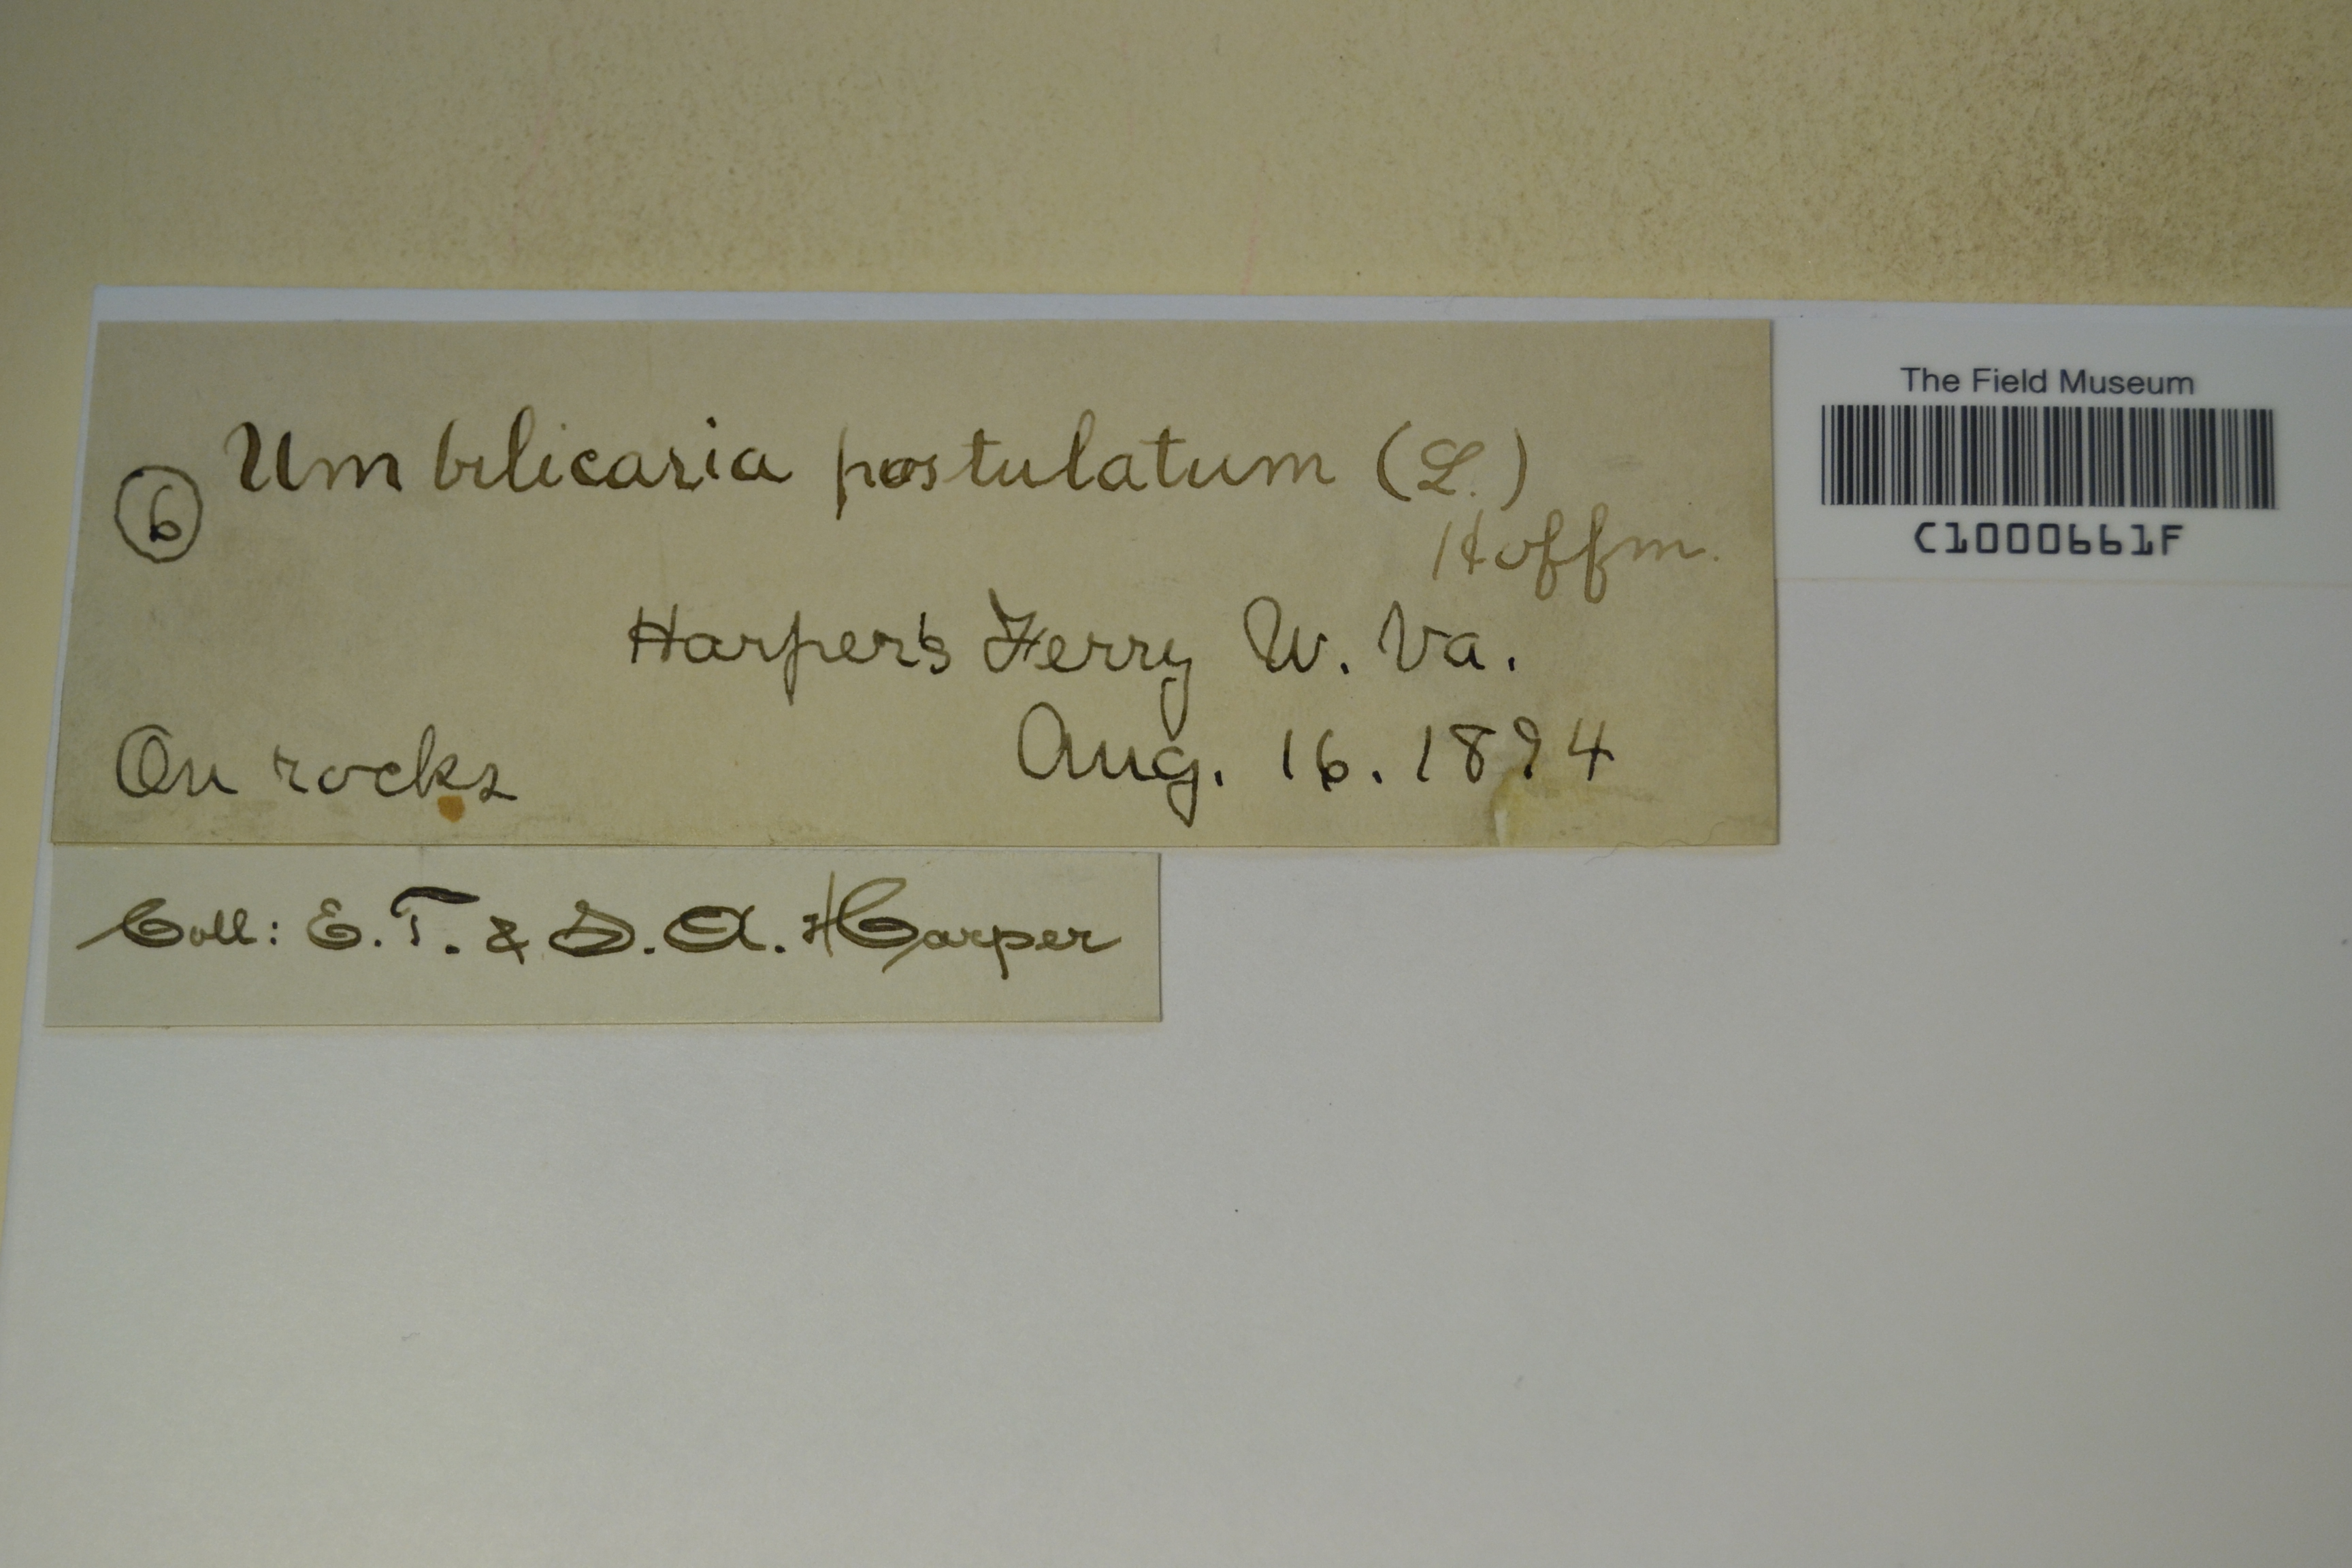 Umbilicaria postulatum (L.)
6
Hoffm.
Harper's Ferry W. Va.
On rocks
Aug. 16. 1894
Coll: E. T. & S. A. Harper
The Field Museum
C1000661F